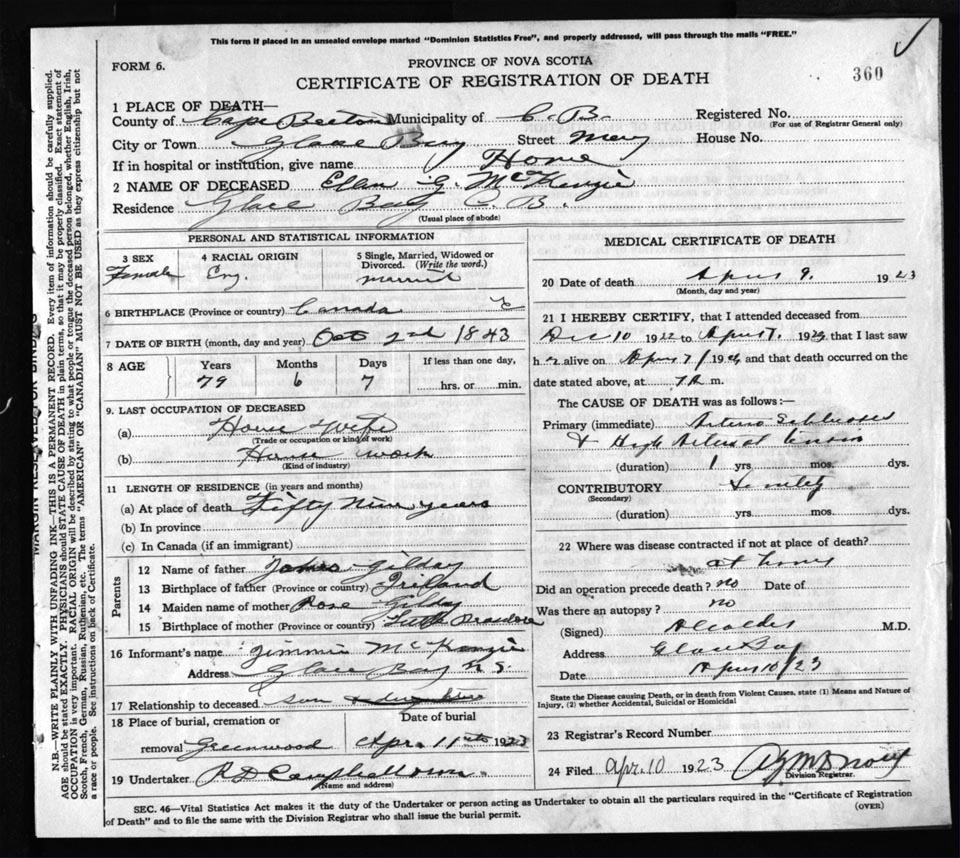 This form if placed in an unsealed envelope marked "Dominion Statistics Free", and properly addressed, will pass through the mails "FREE."
FORM 6.
PROVINCE OF NOVA SCOTIA
360
CERTIFICATE OF REGISTRATION OF DEATH
1 PLACE OF DEATH—
County of Cape Breton Municipality of C. B. Registered No.
(For use of Registrar General only)
City or Town Glace Bay Street Mary House No.
If in hospital or institution, give name Home
2 NAME OF DECEASED Ellen G. McKenzie
Residence Glace Bay C. B.
(Usual place of abode)
PERSONAL AND STATISTICAL INFORMATION
3 SEX 4 RACIAL ORIGIN 5 Single, Married, Widowed or Divorced. (Write the word.)
Female Eng. married
6 BIRTHPLACE (Province or country) Canada
7 DATE OF BIRTH (month, day and year) Oct 2nd 1843
8 AGE Years Months Days If less than one day,
79 6 7 hrs. or min.
9. LAST OCCUPATION OF DECEASED
(a) House Wife
(Trade or occupation or kind of work)
(b) House work
(Kind of industry)
11 LENGTH OF RESIDENCE (in years and months)
(a) At place of death Fifty Nine years
(b) In province
(c) In Canada (if an immigrant)
Parents
12 Name of father James Gilday
13 Birthplace of father (Province or country) Irlland
14 Maiden name of mother Rose Gilday
15 Birthplace of mother (Province or country) Little
16 Informant's name Jimmie McKenzie
Address Glace Bay N.S.
17 Relationship to deceased son
18 Place of burial, cremation or Date of burial
removal Greenwood Apr. 11th 1923
19 Undertaker R D Campbell
(Name and address)
MEDICAL CERTIFICATE OF DEATH
20 Date of death April 9. 1923
(Month, day and year)
21 I HEREBY CERTIFY, that I attended deceased from
Dec 10 1922 to April 7. 1923, that I last saw
h er alive on April 7 / 19 and that death occurred on the
date stated above, at 7 A m.
The CAUSE OF DEATH was as follows:—
Primary (immediate) Arterio Sclerosis
& High Arterial
(duration) 1 yrs. mos. dys.
CONTRIBUTORY Senility
(Secondary)
(duration) yrs. mos. dys.
22 Where was disease contracted if not at place of death?
at home
Did an operation precede death? no Date of
Was there an autopsy? no
(Signed) M.D.
Address Glace Bay
Date April 10/23
State the Disease causing Death, or in death from Violent Causes, state (1) Means and Nature of
Injury, (2) whether Accidental, Suicidal or Homicidal
23 Registrar's Record Number
24 Filed Apr. 10 1923
Division Registrar.
SEC. 46—Vital Statistics Act makes it the duty of the Undertaker or person acting as Undertaker to obtain all the particulars required in the "Certificate of Registration
of Death" and to file the same with the Division Registrar who shall issue the burial permit.
(OVER)
MARGIN RESERVED FOR BINDING
N.B.—WRITE PLAINLY WITH UNFADING INK—THIS IS A PERMANENT RECORD. Every item of information should be carefully supplied.
AGE should be stated EXACTLY. PHYSICIANS should STATE CAUSE OF DEATH in plain terms, so that it may be properly classified. Exact statement of
OCCUPATION is very important. RACIAL ORIGIN will be described by stating to what people or tongue the deceased person belonged, whether English, Irish,
Scotch, French, German, Russian, Ruthenian, etc. The terms "AMERICAN" OR "CANADIAN" MUST NOT BE USED as they express citizenship but not
a race or people. See instructions on back of Certificate.